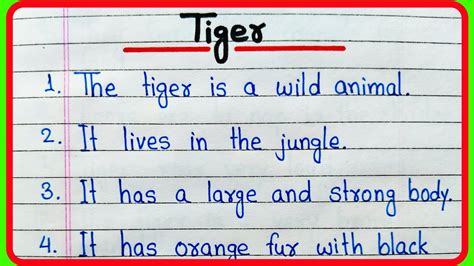 Tiger
1. The tiger is a wild animal.
2. It lives in the jungle.
3. It has a large and strong body.
4. It has orange fur with black